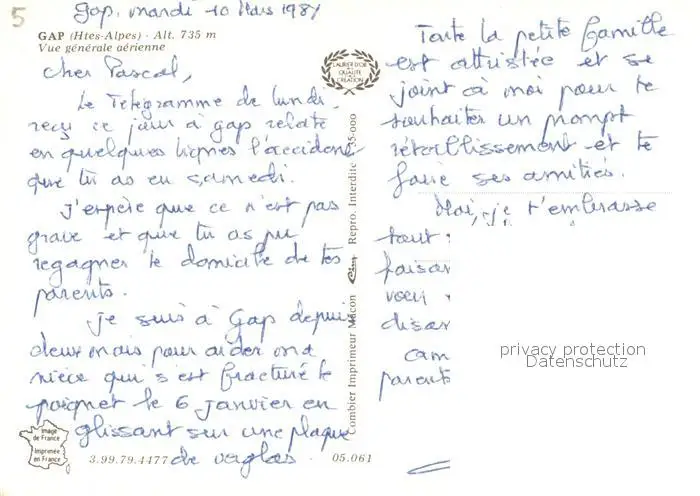 5
Gap, mardi 10 Mars 1981
GAP (Htes-Alpes) - Alt. 735 m
Vue générale aérienne
Cher Pascal,
Le Télégramme de lundi,
reçu ce jour à gap relate
en quelques lignes l'accident
que tu as eu samedi.
J'espère que ce n'est pas
grave et que tu as pu
regagner le domicile de tes
parents.
Je suis à Gap depuis
deux mois pour aider ma
nièce qui s'est fracturé le
poignet le 6 janvier en
glissant sur une plaque
de verglas.
Image
de France
Imprimée
en France
3.99.79.4477
05.061
LAURIER D'OR
DE LA
QUALITÉ
CRÉATION
Combier Imprimeur Mâcon
Cim
Repro. Interdite
35-000
Toute la petite famille
est attristée et se
joint à moi pour te
souhaiter un prompt
rétablissement et te
faire ses amitiés.
Moi, je t'embrasse
tout
faisan
voeu
disan
cam
parents
privacy protection
Datenschutz